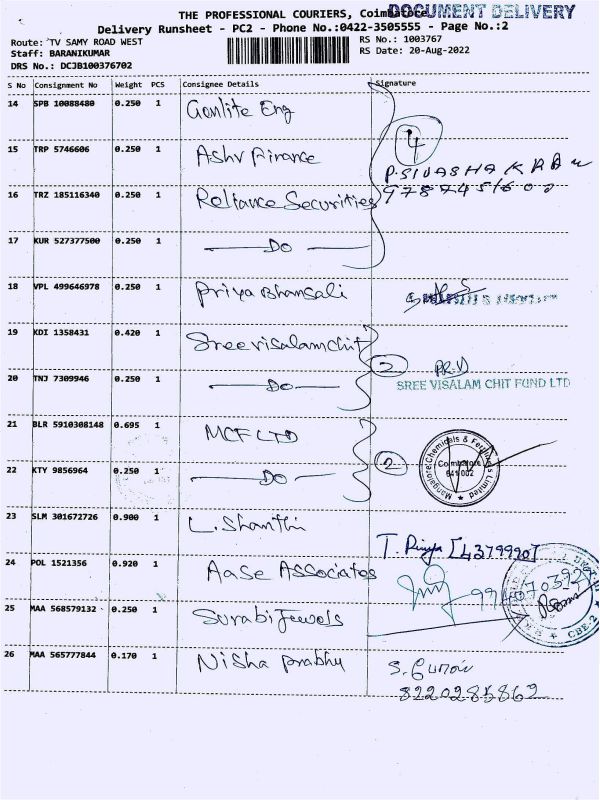 THE PROFESSIONAL COURIERS, Coimbatore
DOCUMENT DELIVERY
Delivery Runsheet - PC2 - Phone No.:0422-3505555 - Page No.:2
Route: TV SAMY ROAD WEST
RS No.: 1003767
Staff: BARANIKUMAR
RS Date: 20-Aug-2022
DRS No.: DCJB100376702
S No Consignment No Weight PCS Consignee Details Signature
14 SPB 10088480 0.250 1 Genlite Eng
4
15 TRP 5746606 0.250 1 Ashv Finance
P.SIVASHAKRAN
16 TRZ 185116340 0.250 1 Reliance Securities
17 KUR 527377500 0.250 1 Do
18 VPL 499646978 0.250 1 Priya Bhansali
19 KDI 1358431 0.420 1 Sree visalam chit
2
20 TNJ 7309946 0.250 1 Do
SREE VISALAM CHIT FUND LTD
21 BLR 5910308148 0.695 1 MCF LTD
Mangalore Chemicals & Fertilizers Limited
Coimbatore
641 002
2
22 KTY 9856964 0.250 1 Do
23 SLM 301672726 0.900 1 L. Shanthi
T. Priya [4379990]
24 POL 1521356 0.920 1 Aase Associates
9940703927
CBE-2
25 MAA 568579132 0.250 1 Surabi Jewels
26 MAA 565777844 0.170 1 Nisha Prabhu
3220285862